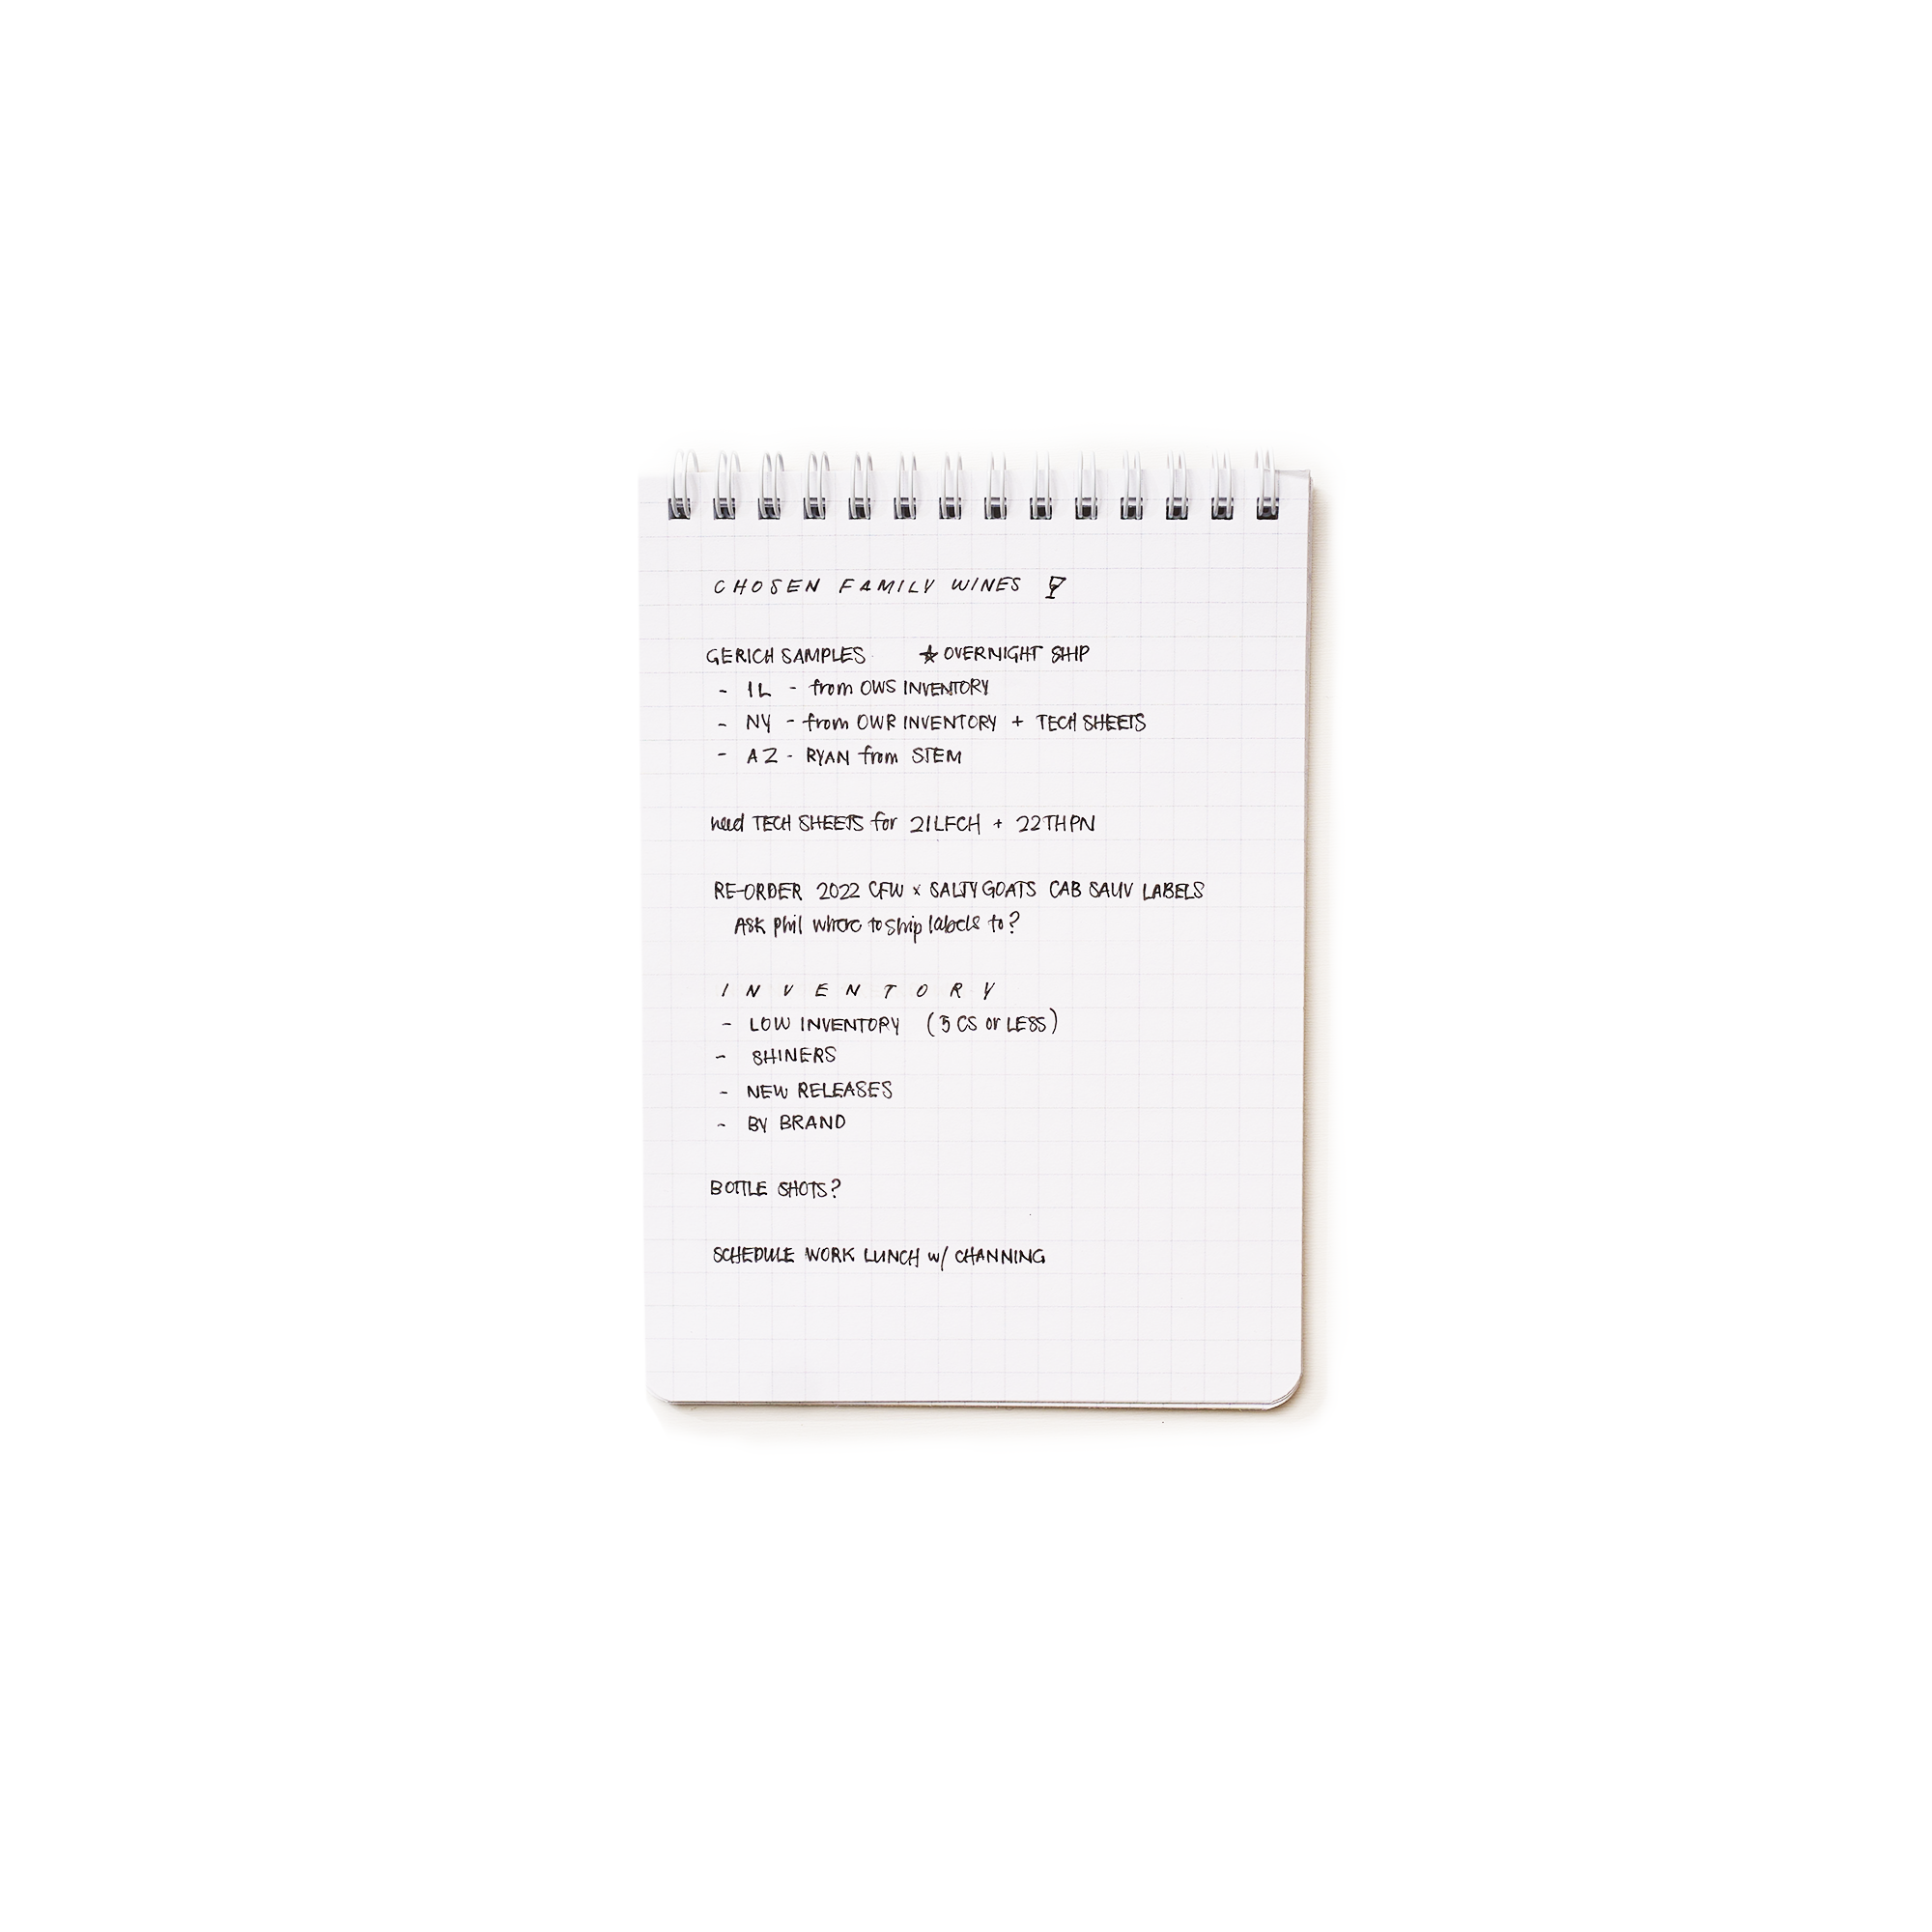 CHOSEN FAMILY WINES
GERICH SAMPLES ★ OVERNIGHT SHIP
- IL - from OWS INVENTORY
- NY - from OWR INVENTORY + TECH SHEETS
- AZ - RYAN from STEM
need TECH SHEETS for 21LFCH + 22THPN
RE-ORDER 2022 CFW x SALTY GOATS CAB SAUV LABELS
ASK phil where to ship labels to?
INVENTORY
- LOW INVENTORY (5 CS or LESS)
- SHINERS
- NEW RELEASES
- BY BRAND
BOTTLE SHOTS?
SCHEDULE WORK LUNCH w/ CHANNING